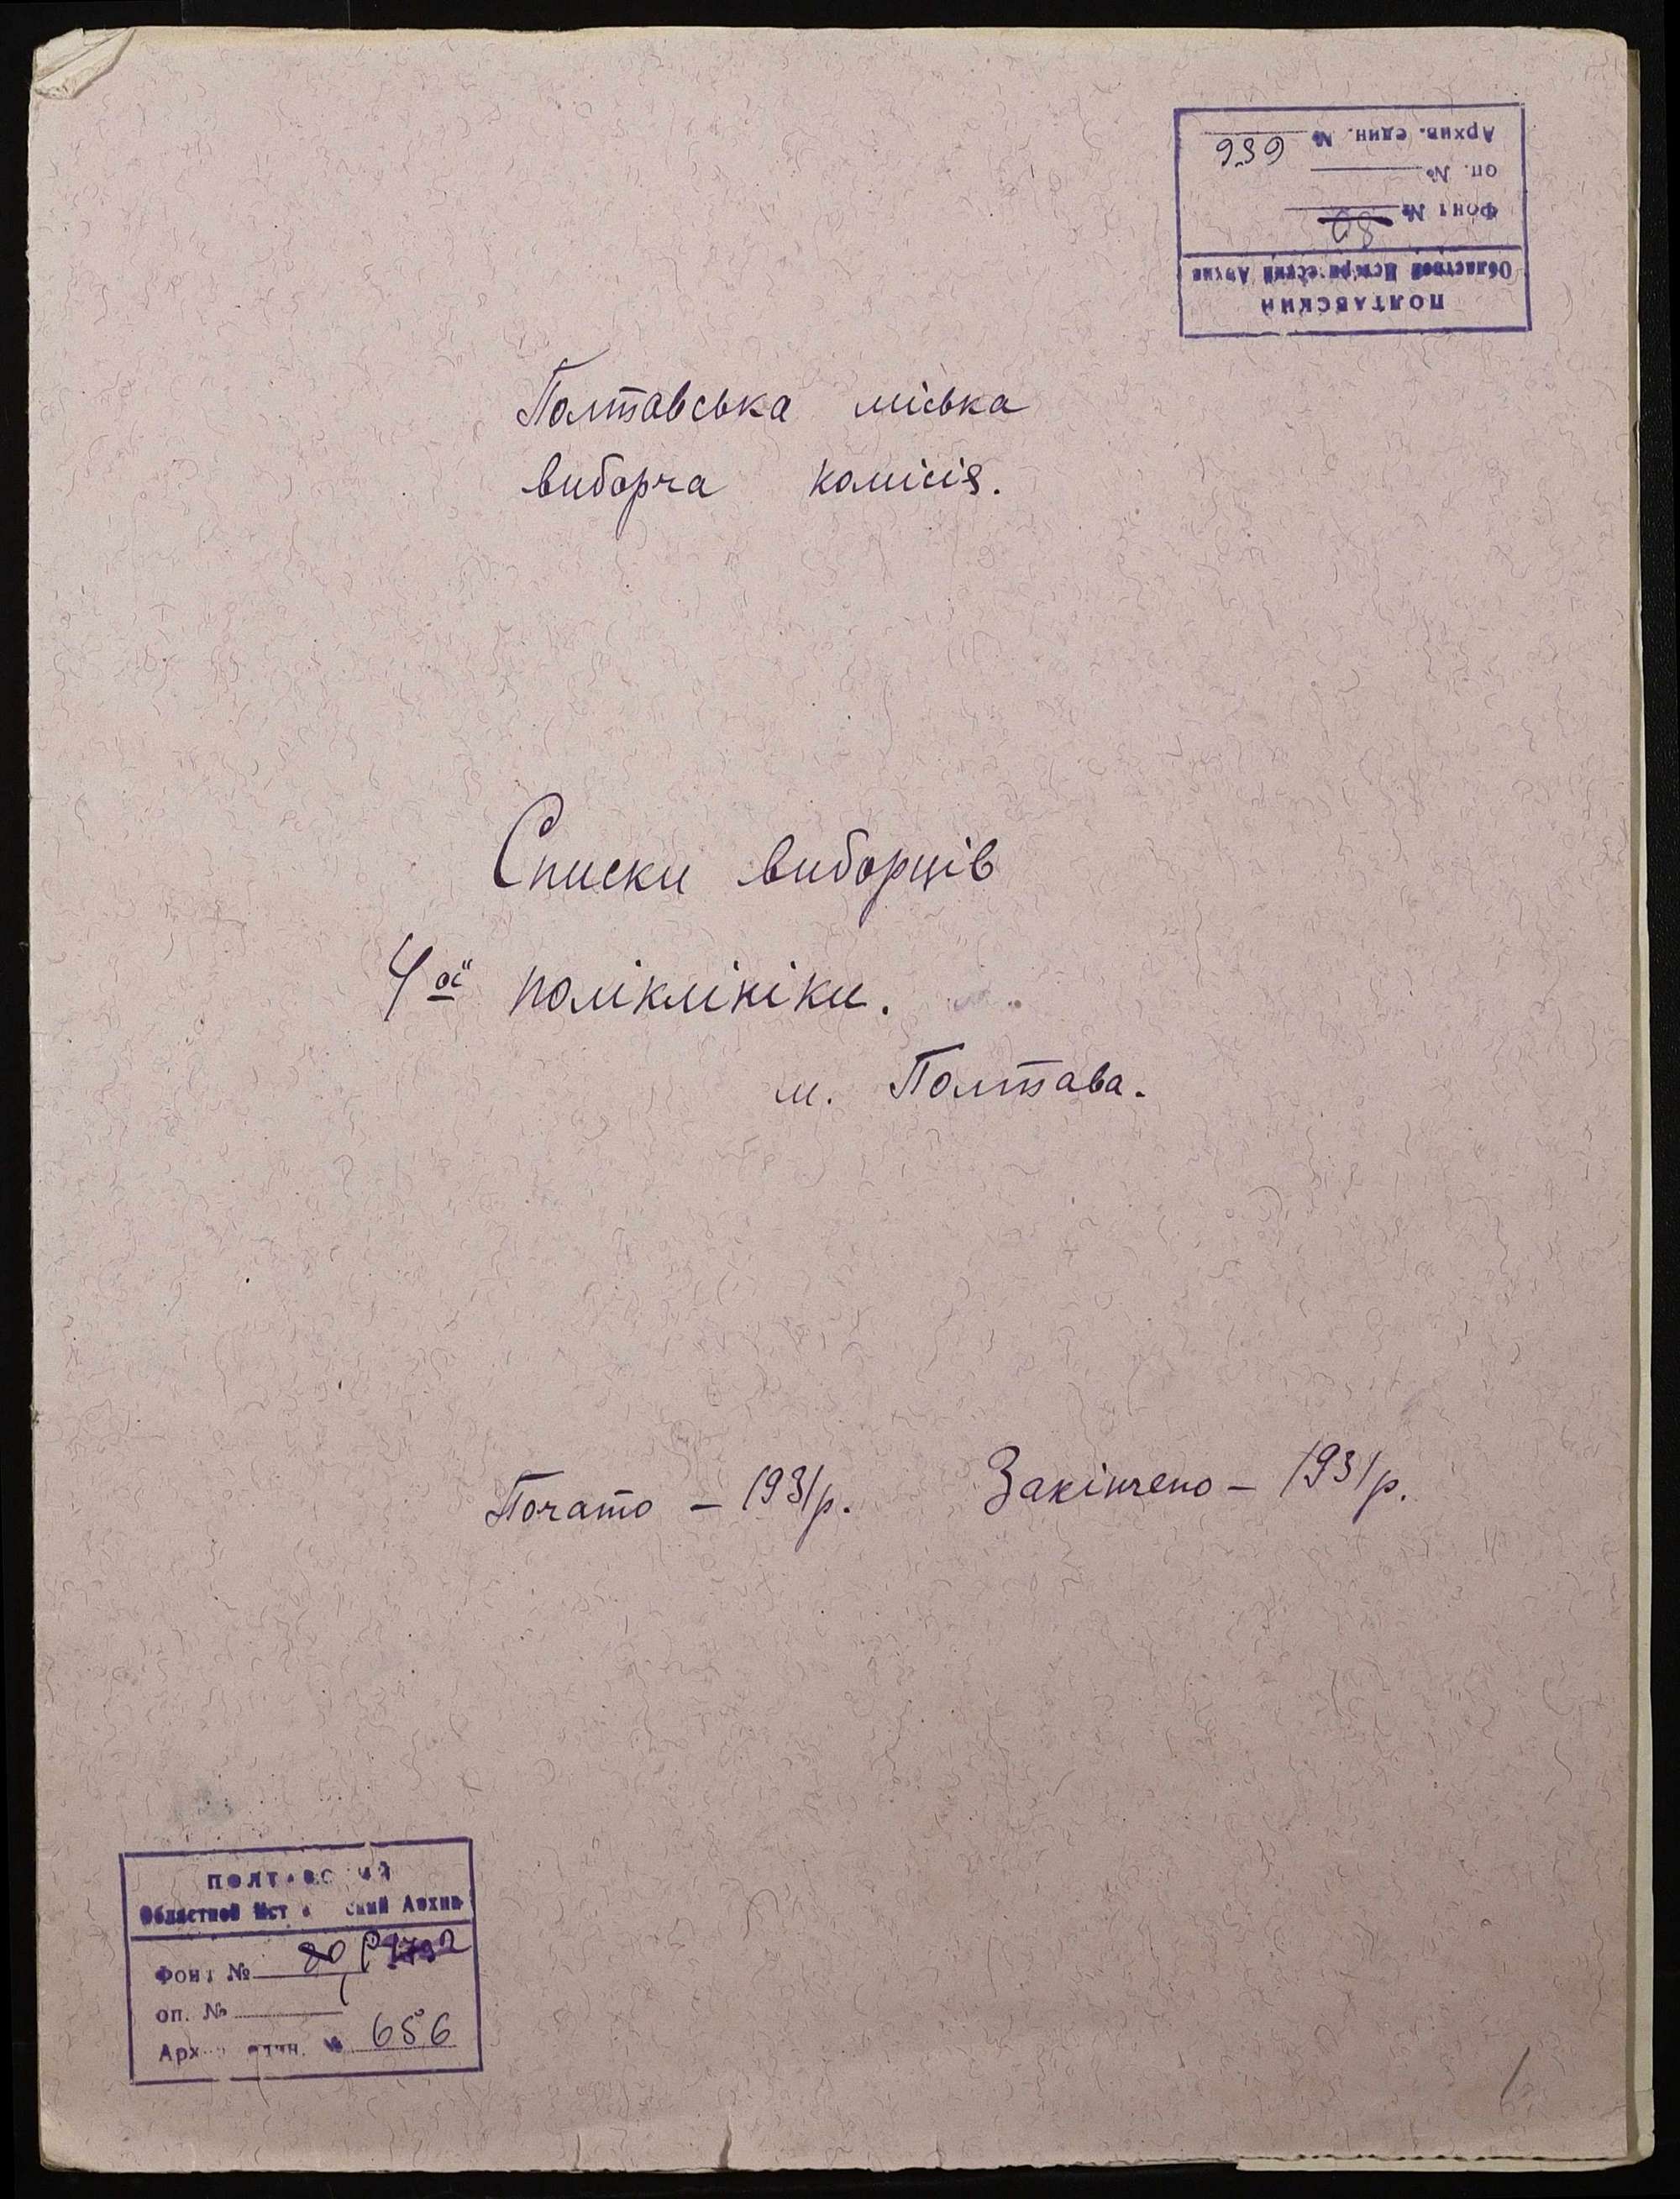 ПОЛТАВСКИЙ
Областной Исторический Архив
Фонд № 80
оп. №
Архив. един. № 656
Полтавська міська
виборча комісія.
Списки виборців
4ої поліклініки.
м. Полтава.
Почато – 1931 р.
Закінчено – 1931 р.
ПОЛТАВСКИЙ
Областной Исторический Архив
Фонд № 80,
оп. №
Архив. един. № 656